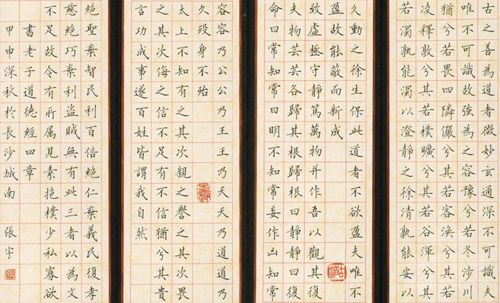 古之善為道者微妙玄通深不可識夫
唯不可識故強為之容豫兮若冬涉川
猶兮若畏四隣儼兮其若客渙兮其若
凌釋敦兮其若樸曠兮其若谷渾兮其
若濁孰能濁以澄靜之徐清孰能安以
久動之徐生保此道者不欲盈夫唯不
盈故能蔽而新成
致虛極守靜篤萬物并作吾以觀其復
夫物芸芸各歸其根歸根曰靜靜曰復
命曰常知常曰明不知常妄作凶知常
容容乃公公乃王王乃天天乃道道乃
久歿身不殆
太上不知有之其次親之譽之其次畏
之其次侮之信不足有不信猶兮其貴
言功成事遂百姓皆謂我自然
絕聖棄智民利百倍絕仁棄義民復孝
慈絕巧棄利盜賊無有此三者以為文
不足故令有所屬見素抱樸少私寡欲
書老子道德經四章
甲申深秋於長沙城南 張宇